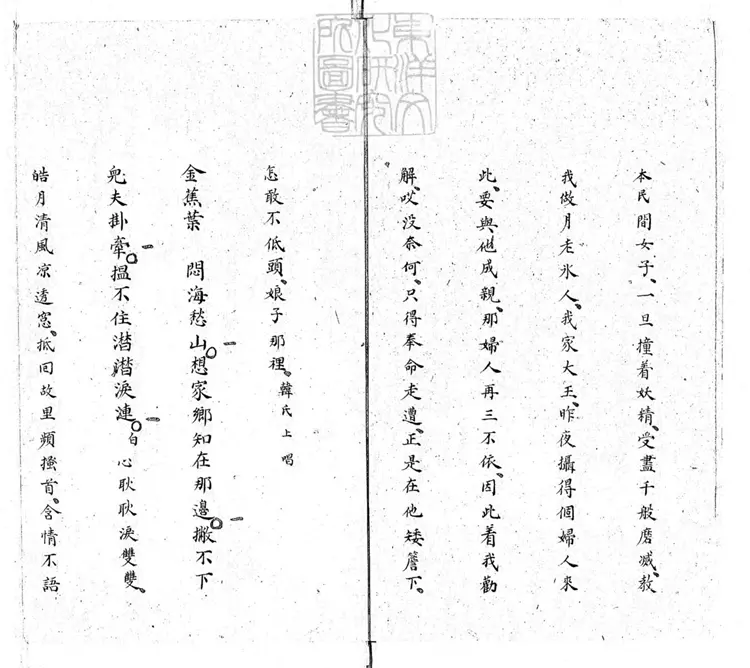 本民間女子、一旦撞着妖精、受盡千般磨滅、教
我做月老氷人、我家大王、昨夜攝得個婦人來
此、要與他成親、那婦人再三不依、因此着我勸
解、哎没奈何、只得奉命走遭、正是在他矮簷下、
怎敢不低頭、娘子那裡、韓氏上唱
金蕉葉 悶海愁山。想家鄉知在那邊。撇不下
兒夫掛牽。搵不住潸潸淚漣。白 心耿耿淚雙雙、
皓月清風凉透窓、抵回故里頻搔首、含情不語
東洋文化研究所圖書